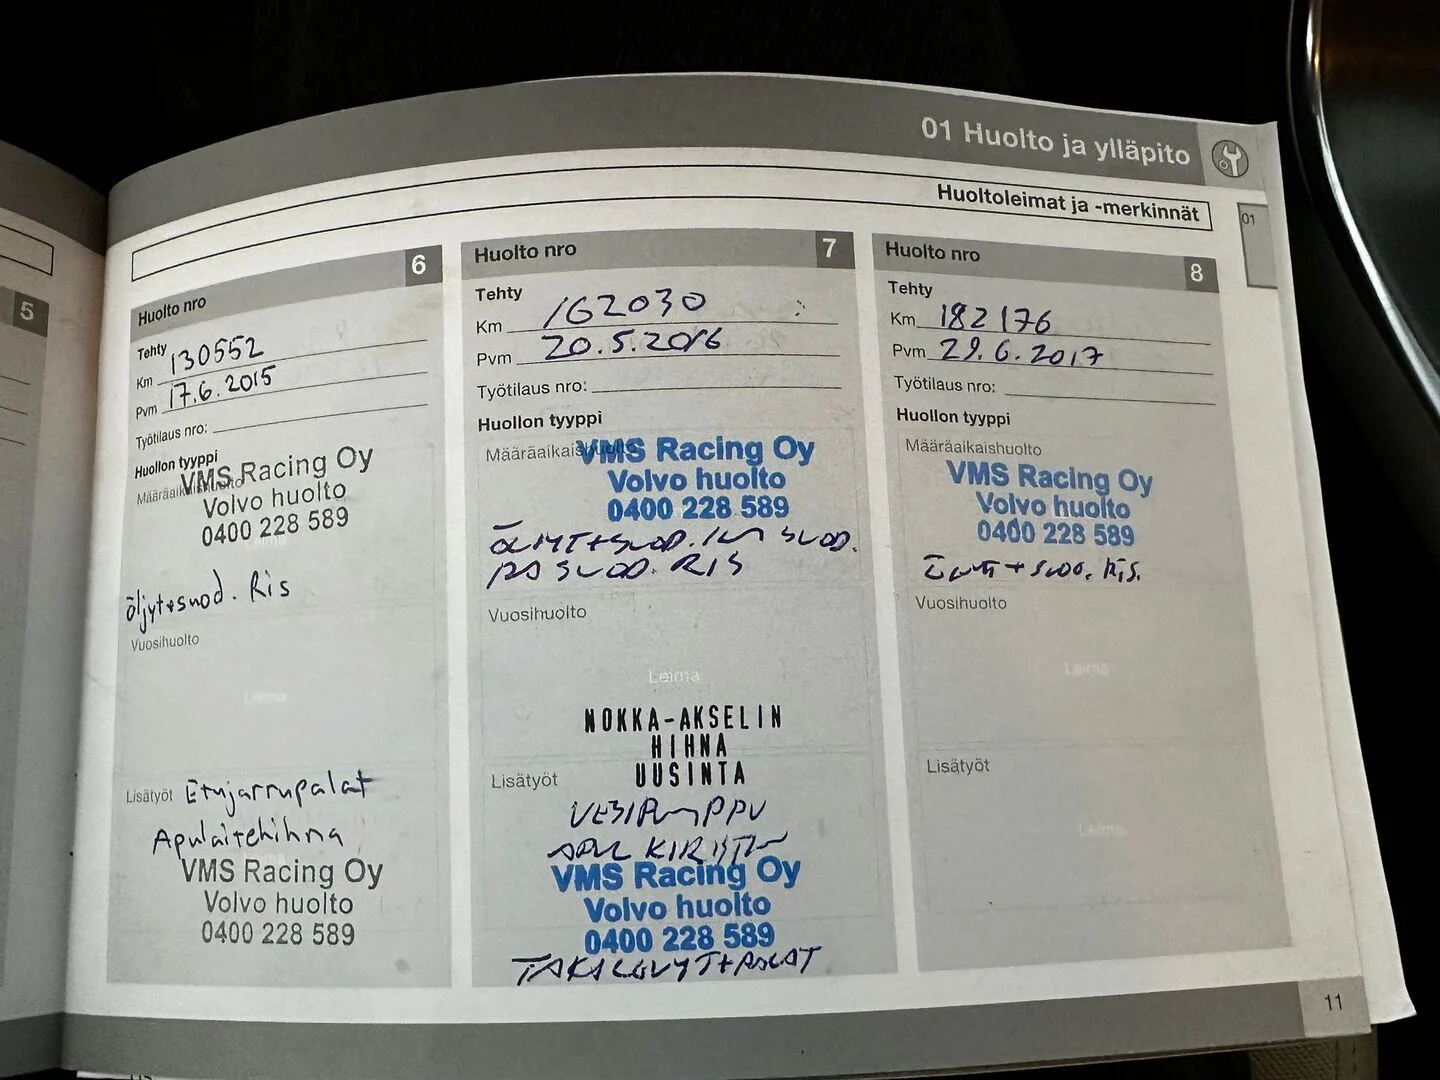 01 Huolto ja ylläpito
Huoltoleimat ja -merkinnät
01
5
Huolto nro 6
Tehty
Km 130552
Pvm 17.6.2015
Työtilaus nro:
Huollon tyyppi
Määräaikaishuolto
VMS Racing Oy
Volvo huolto
0400 228 589
Leima
öljyt+suod. Ris
Vuosihuolto
Leima
Lisätyöt Etujarrupalat
Apulaitehihna
VMS Racing Oy
Volvo huolto
0400 228 589
Huolto nro 7
Tehty
Km 162030
Pvm 20.5.2016
Työtilaus nro:
Huollon tyyppi
Määräaikaishuolto
VMS Racing Oy
Volvo huolto
0400 228 589
ÖLJYT+SUOD. SUOD.
PA SUOD. RIS
Vuosihuolto
Leima
NOKKA-AKSELIN
HIHNA
UUSINTA
Lisätyöt
VESIPUMPPU
VMS Racing Oy
Volvo huolto
0400 228 589
TAKALEVYT+PALAT
Huolto nro 8
Tehty
Km 182176
Pvm 29.6.2017
Työtilaus nro:
Huollon tyyppi
Määräaikaishuolto
VMS Racing Oy
Volvo huolto
0400 228 589
Vuosihuolto
Leima
Lisätyöt
Leima
11